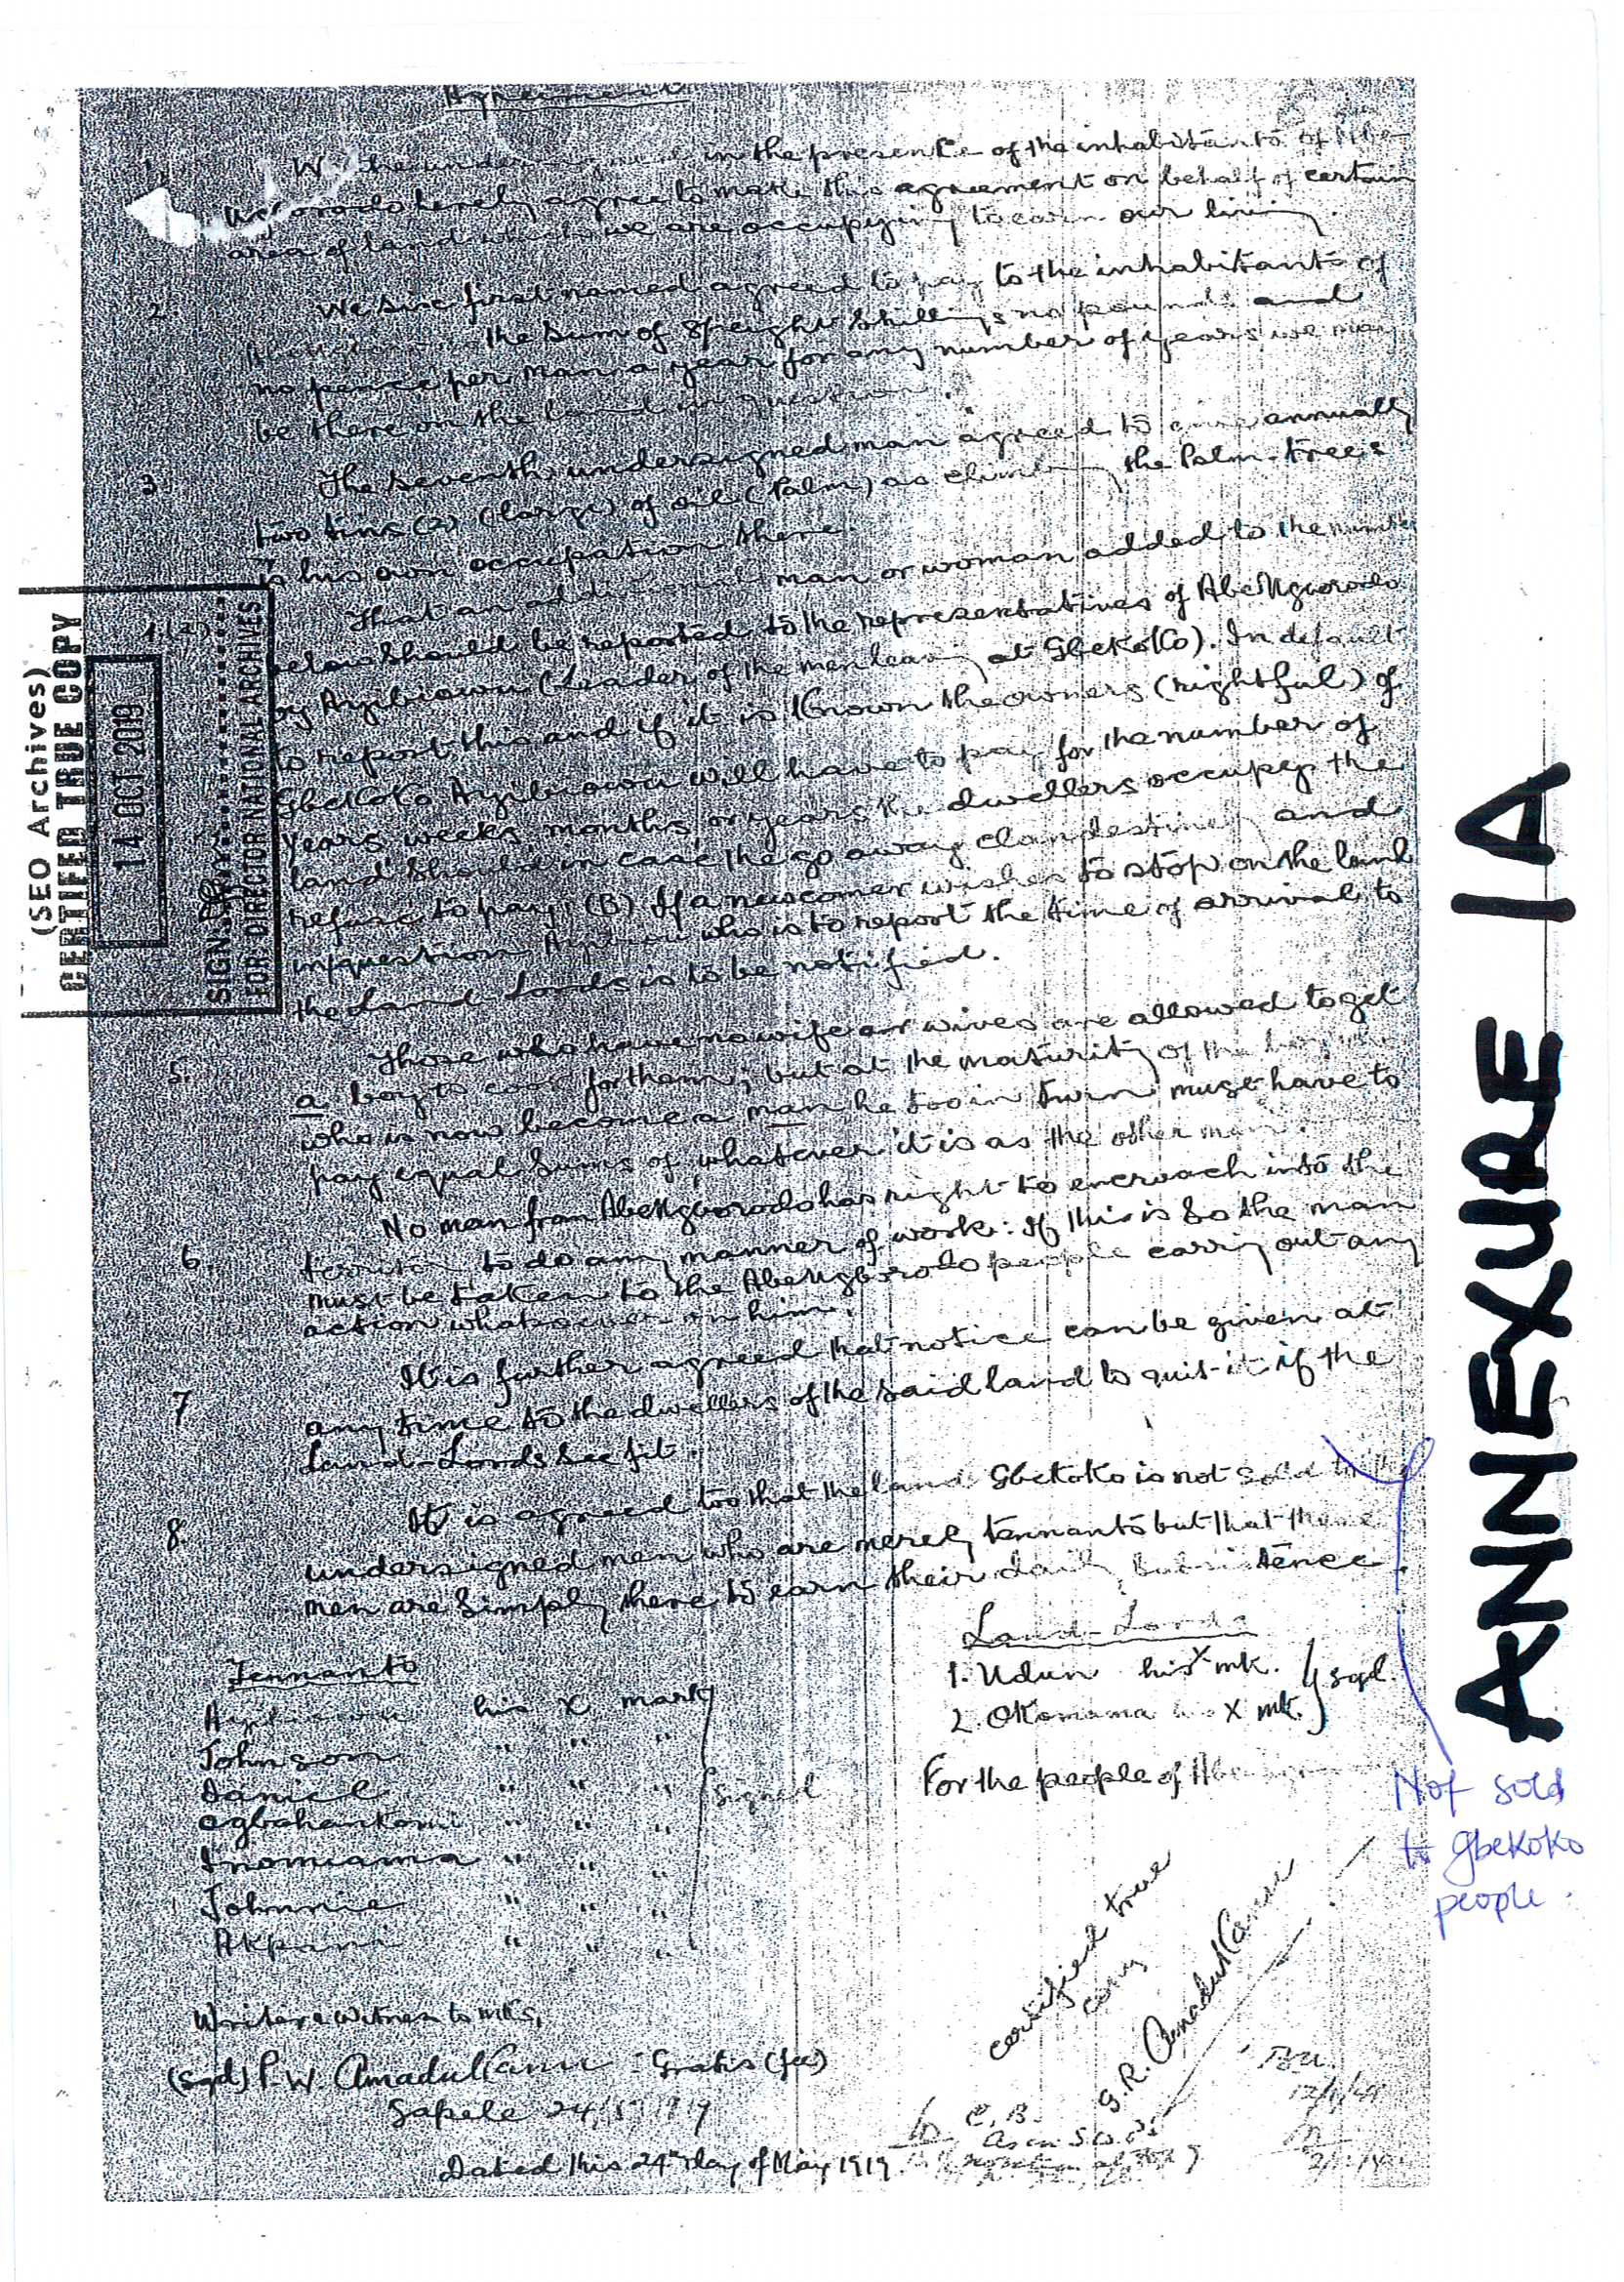 Agreement
1. We the undersigned in the presence of the inhabitants of Abe-
hereby agree to make this agreement on behalf of certain
area of land which we are occupying to earn our living.
2. We six first named agreed to pay to the inhabitants of
the sum of 8/ eight shillings no pounds and
no pence per man a year for any number of years we may
be there on the land in question.
3. The seventh undersigned man agreed to give annually
two tins (2) (large) of oil (Palm) as climbing the Palm-trees
is his own occupation there.
That an additional man or woman added to the number
below should be reported to the representatives of AbeNgborodo
by (Leader of the men leaving at Gbekoko). In default
to report this and if it is known the owners (rightful) of
Gbekoko will have to pay for the number of
years weeks months or years the dwellers occupy the
land should in case the go away clandestinely and
refuse to pay. (B) If a newcomer wishes to stop on the land
in question who is to report the time of arrival to
the Land Lords is to be notified.
5. Those who have no wife or wives are allowed to get
a boy to cook for them; but at the maturity of the boy
who is now become a man he too in turn must have to
pay equal sums of whatever it is as the other man.
6. No man from AbeNgborodo has right to encroach into the
territory to do any manner of work: If this is so the man
must be taken to the AbeNgborodo people carry out any
action whatsoever on him.
7 It is further agreed that notice can be given at
any time to the dwellers of the said land to quit it if the
Land-Lords see fit.
8. It is agreed too that the land Gbekoko is not sold to the
undersigned men who are merely tennants but that these
men are simply there to earn their daily subsistence.
Tennants
his x mark
Johnson " " "
Daniel " " "
" " "
" " "
Johnnie " " "
Akpani " " "
signed
Land-Lords
1. Udun his x mk.
2. Okomama x mk.
sgd.
For the people of
Writer & Witness to mks,
(Sgd) P.W. Amadul Canu - Gratis (fee)
Sapele 24/5/1919
Dated this 24th day of May 1919.
certified true
copy
G.R. Amadul Canu
(SEO Archives)
CERTIFIED TRUE COPY
14 OCT 2019
SIGN
FOR DIRECTOR NATIONAL ARCHIVES
ANNEXURE 1A
Not sold
to Gbekoko
people.